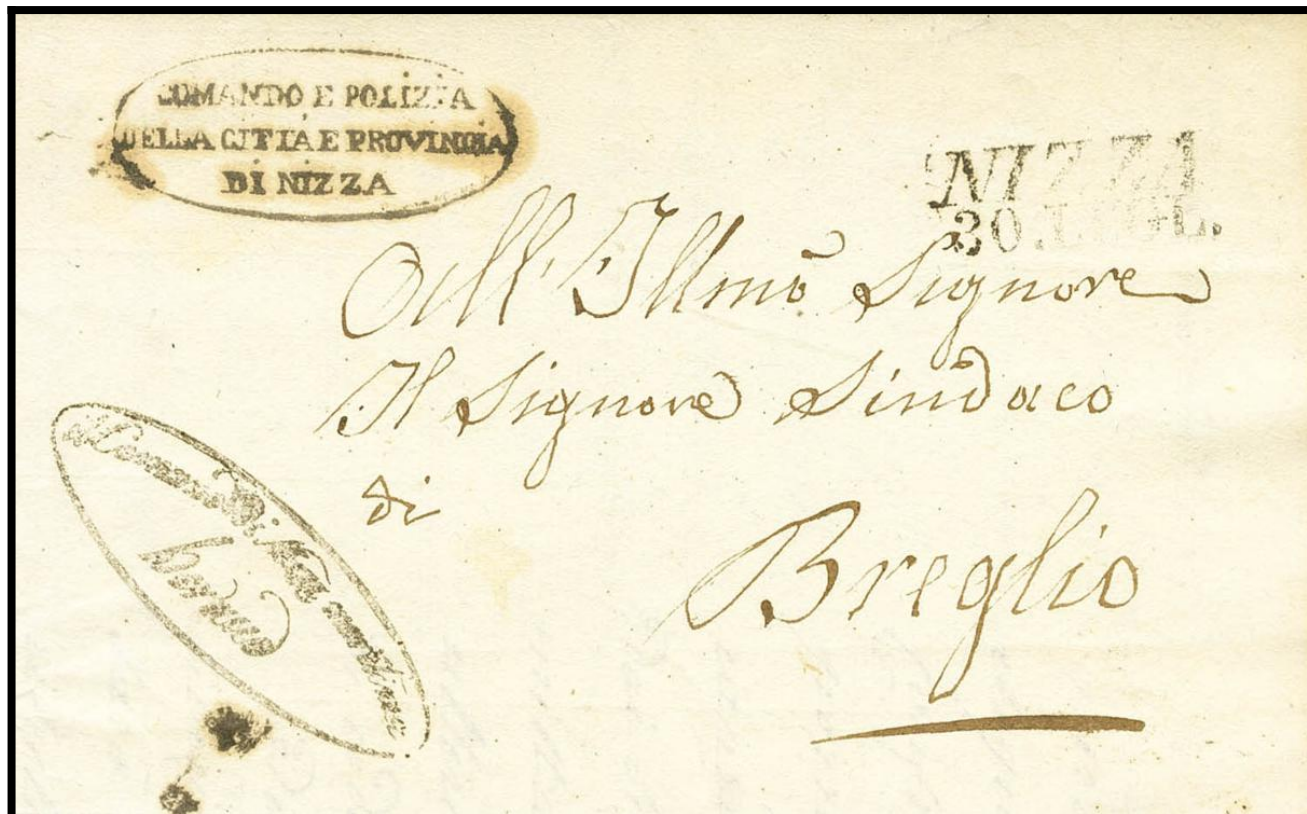 COMANDO E POLIZIA
DELLA CITTÀ E PROVINCIA
DI NIZZA
NIZZA
30. LUGL.
All' Illmō Signore
Il Signore Sindaco
di
Breglio